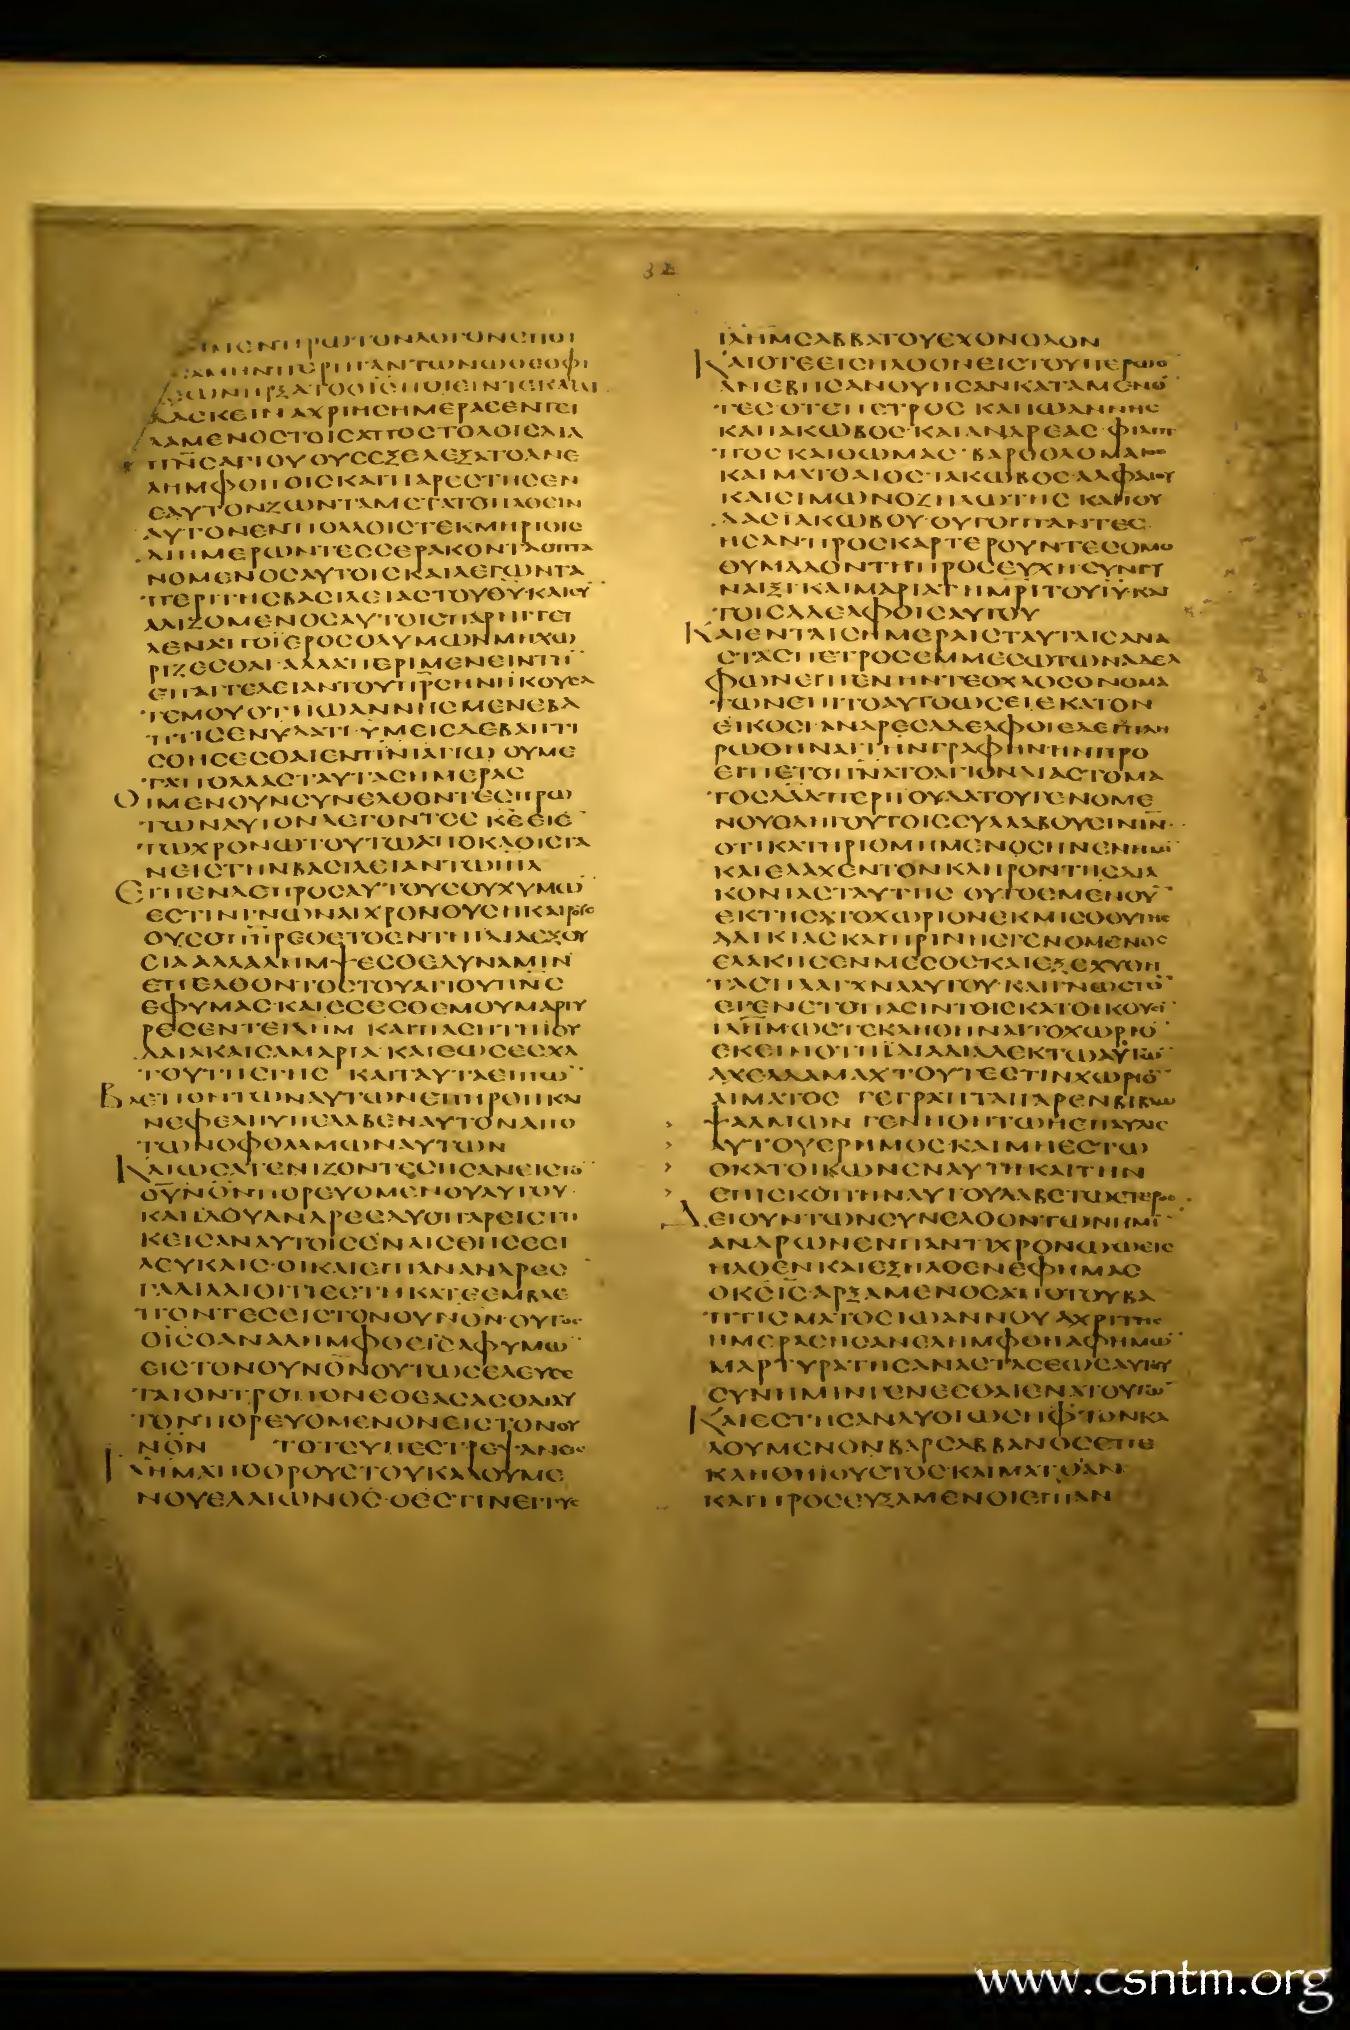 32
ΜΕΝΠΡΩΤΟΝΛΟΓΟΝΕΠΟΙ
ΣΑΜΗΝΠΕΡΙΠΑΝΤΩΝΩΘΕΟΦΙ
ΩΝΗΡΞΑΤΟΟΙΣΠΟΙΕΙΝΤΕΚΑΙΔΙ
ΔΑΣΚΕΙΝΑΧΡΙΗΣΗΜΕΡΑΣΕΝΤΕΙ
ΛΑΜΕΝΟΣΤΟΙΣΑΠΟΣΤΟΛΟΙΣΔΙΑ
ΠΝΣΑΓΙΟΥΟΥΣΕΞΕΛΕΞΑΤΟΑΝΕ
ΛΗΜΦΘΗΟΙΣΚΑΙΠΑΡΕΣΤΗΣΕΝ
ΕΑΥΤΟΝΖΩΝΤΑΜΕΤΑΤΟΠΑΘΕΙΝ
ΑΥΤΟΝΕΝΠΟΛΛΟΙΣΤΕΚΜΗΡΙΟΙΣ
ΔΙΗΜΕΡΩΝΤΕΣΣΕΡΑΚΟΝΤΑΟΠΤΑ
ΝΟΜΕΝΟΣΑΥΤΟΙΣΚΑΙΛΕΓΩΝΤΑ
ΠΕΡΙΤΗΣΒΑΣΙΛΕΙΑΣΤΟΥΘΥΚΑΙΣΥ
ΑΛΙΖΟΜΕΝΟΣΑΥΤΟΙΣΠΑΡΗΓΓΕΙ
ΛΕΝΑΠΟΙΕΡΟΣΟΛΥΜΩΝΜΗΧΩ
ΡΙΖΕΣΘΑΙ·ΑΛΛΑΠΕΡΙΜΕΝΕΙΝΤΗ
ΕΠΑΓΓΕΛΕΙΑΝΤΟΥΠΡΣΗΝΗΚΟΥΣΑ
ΤΕΜΟΥΟΤΙΙΩΑΝΝΗΣΜΕΝΕΒΑ
ΠΤΙΣΕΝΥΔΑΤΙ·ΥΜΕΙΣΔΕΒΑΠΤΙ
ΣΘΗΣΕΣΘΑΙΕΝΠΝΙΑΓΙΩ ΟΥΜΕ
ΤΑΠΟΛΛΑΣΤΑΥΤΑΣΗΜΕΡΑΣ
ΟΙΜΕΝΟΥΝΣΥΝΕΛΘΟΝΤΕΣΗΡΩ
ΤΩΝΑΥΤΟΝΛΕΓΟΝΤΕΣ ΚΕΕΙΕ
ΤΩΧΡΟΝΩΤΟΥΤΩΑΠΟΚΑΘΙΣΤΑ
ΝΕΙΣΤΗΝΒΑΣΙΛΕΙΑΝΤΩΙΗΛ
ΕΙΠΕΝΔΕΠΡΟΣΑΥΤΟΥΣΟΥΧΥΜΩ
ΕΣΤΙΝΓΝΩΝΑΙΧΡΟΝΟΥΣΗΚΑΙΡΟΥΣ
ΟΥΣΟΠΗΡΕΘΕΤΟΕΝΤΗΙΔΙΑΕΞΟΥ
ΣΙΑΑΛΛΑΛΗΜΨΕΣΘΕΔΥΝΑΜΙΝ
ΕΠΕΛΘΟΝΤΟΣΤΟΥΑΓΙΟΥΠΝΣ
ΕΦΥΜΑΣ·ΚΑΙΕΣΕΣΘΕΜΟΥΜΑΡΤΥ
ΡΕΣΕΝΤΕΙΛΗΜ ΚΑΙΠΑΣΗΤΗΙΟΥ
ΔΑΙΑΚΑΙΣΑΜΑΡΙΑ·ΚΑΙΕΩΣΕΣΧΑ
ΤΟΥΤΗΣΓΗΣ ΚΑΙΤΑΥΤΑΕΙΠΩ
ΒΛΕΠΟΝΤΩΝΑΥΤΩΝΕΠΗΡΘΗΚΑΙ
ΝΕΦΕΛΗΥΠΕΛΑΒΕΝΑΥΤΟΝΑΠΟ
ΤΩΝΟΦΘΑΛΜΩΝΑΥΤΩΝ
ΚΑΙΩΣΑΤΕΝΙΖΟΝΤΕΣΗΣΑΝΕΙΣΤΟ
ΟΥΝΟΝΠΟΡΕΥΟΜΕΝΟΥΑΥΤΟΥ·
ΚΑΙΙΔΟΥΑΝΔΡΕΣΔΥΟΠΑΡΕΙΣΤΗ
ΚΕΙΣΑΝΑΥΤΟΙΣΕΝΑΙΣΘΗΣΕΣΙ
ΛΕΥΚΑΙΣ·ΟΙΚΑΙΕΙΠΑΝΑΝΔΡΕΣ
ΓΑΛΙΛΑΙΟΙΤΙΕΣΤΗΚΑΤΕΕΜΒΛΕ
ΠΟΝΤΕΣΕΙΣΤΟΝΟΥΝΟΝ·ΟΥΤΟΣ
ΟΙΣΟΑΝΑΛΗΜΦΘΕΙΣΑΦΥΜΩ
ΕΙΣΤΟΝΟΥΝΟΝΟΥΤΩΣΕΛΕΥΣΕ
ΤΑΙΟΝΤΡΟΠΟΝΕΘΕΑΣΑΣΘΑΙΑΥ
ΤΟΝΠΟΡΕΥΟΜΕΝΟΝΕΙΣΤΟΝΟΥ
ΝΟΝ ΤΟΤΕΥΠΕΣΤΡΕΨΑΝΕΙΣ
ΙΛΗΜΑΠΟΟΡΟΥΣΤΟΥΚΑΛΟΥΜΕ
ΝΟΥΕΛΑΙΩΝΟΣ·ΟΕΣΤΙΝΕΓΓΥΣ
ΙΛΗΜΣΑΒΒΑΤΟΥΕΧΟΝΟΔΟΝ
ΚΑΙΟΤΕΕΙΣΗΛΘΟΝΕΙΣΤΟΥΠΕΡΩΟ
ΑΝΕΒΗΣΑΝΟΥΗΣΑΝΚΑΤΑΜΕΝΟ
ΤΕΣΟΤΕΠΕΤΡΟΣ ΚΑΙΙΩΑΝΝΗΣ
ΚΑΙΙΑΚΩΒΟΣ·ΚΑΙΑΝΔΡΕΑΣ·ΦΙΛΙΠ
ΠΟΣΚΑΙΘΩΜΑΣ·ΒΑΡΘΟΛΟΜΑΙΟΣ
ΚΑΙΜΑΤΘΑΙΟΣ·ΙΑΚΩΒΟΣ·ΑΛΦΑΙΟΥ
ΚΑΙΣΙΜΩΝΟΖΗΛΩΤΗΣ ΚΑΙΙΟΥ
ΔΑΣΙΑΚΩΒΟΥ·ΟΥΤΟΙΠΑΝΤΕΣ
ΗΣΑΝΠΡΟΣΚΑΡΤΕΡΟΥΝΤΕΣΟΜΟ
ΘΥΜΑΔΟΝΤΗΠΡΟΣΕΥΧΗΣΥΝΓΥ
ΝΑΙΞΙ·ΚΑΙΜΑΡΙΑΤΗΜΡΙΤΟΥΙΥ·ΚΑΙ
ΤΟΙΣΑΔΕΛΦΟΙΣΑΥΤΟΥ
ΚΑΙΕΝΤΑΙΣΗΜΕΡΑΙΣΤΑΥΤΑΙΣΑΝΑ
ΣΤΑΣΠΕΤΡΟΣΕΜΜΕΣΩΤΩΝΑΔΕΛ
ΦΩΝΕΙΠΕΝΗΝΤΕΟΧΛΟΣΟΝΟΜΑ
ΤΩΝΕΠΙΤΟΑΥΤΟΩΣΕΙΕΚΑΤΟΝ
ΕΙΚΟΣΙ·ΑΝΔΡΕΣΑΔΕΛΦΟΙΕΔΕΙΠΛΗ
ΡΩΘΗΝΑΙΤΗΝΓΡΑΦΗΝΗΝΠΡΟ
ΕΙΠΕΤΟΠΝΑΤΟΑΓΙΟΝΔΙΑΣΤΟΜΑ
ΤΟΣΔΑΔΠΕΡΙΙΟΥΔΑΤΟΥΓΕΝΟΜΕ
ΝΟΥΟΔΗΓΟΥΤΟΙΣΣΥΛΛΑΒΟΥΣΙΝΙΝ·
ΟΤΙΚΑΤΗΡΙΘΜΗΜΕΝΟΣΗΝΕΝΗΜΙ
ΚΑΙΕΛΑΧΕΝΤΟΝΚΛΗΡΟΝΤΗΣΔΙΑ
ΚΟΝΙΑΣΤΑΥΤΗΣ ΟΥΤΟΣΜΕΝΟΥ
ΕΚΤΗΣΑΤΟΧΩΡΙΟΝΕΚΜΙΣΘΟΥΤΗΣ
ΑΔΙΚΙΑΣΚΑΙΠΡΙΝΗΣΓΕΝΟΜΕΝΟΣ
ΕΛΑΚΗΣΕΝΜΕΣΟΣΚΑΙΕΞΕΧΥΘΗ
ΤΑΣΠΛΑΓΧΝΑΑΥΤΟΥ·ΚΑΙΓΝΩΣΤΟ
ΕΓΕΝΕΤΟΠΑΣΙΝΤΟΙΣΚΑΤΟΙΚΟΥΣΙ
ΙΛΗΜΩΣΤΕΚΛΗΘΗΝΑΙΤΟΧΩΡΙΟ
ΕΚΕΙΝΟΤΗΙΔΙΑΔΙΑΛΕΚΤΩΑΥΤΩ
ΑΧΕΛΔΑΜΑΧ·ΤΟΥΤΕΣΤΙΝΧΩΡΙΟ
ΑΙΜΑΤΟΣ ΓΕΓΡΑΠΤΑΙΓΑΡΕΝΒΙΒΛΩ
> ΨΑΛΜΩΝ ΓΕΝΗΘΗΤΩΗΕΠΑΥΛΙΣ
> ΑΥΤΟΥΕΡΗΜΟΣΚΑΙΜΗΕΣΤΩ
> ΟΚΑΤΟΙΚΩΝΕΝΑΥΤΗΚΑΙΤΗΝ
> ΕΠΙΣΚΟΠΗΝΑΥΤΟΥΛΑΒΕΤΩΕΤΕΡΟΣ
ΔΕΙΟΥΝΤΩΝΣΥΝΕΛΘΟΝΤΩΝΗΜΙ
ΑΝΔΡΩΝΕΝΠΑΝΤΙΧΡΟΝΩΩΕΙΣ
ΗΛΘΕΝΚΑΙΕΞΗΛΘΕΝΕΦΗΜΑΣ
ΟΚΣΙΣ·ΑΡΞΑΜΕΝΟΣΑΠΟΤΟΥΒΑ
ΠΤΙΣΜΑΤΟΣΙΩΑΝΝΟΥ ΑΧΡΙΤΗΣ
ΗΜΕΡΑΣΗΣΑΝΕΛΗΜΦΘΗΑΦΗΜΩ
ΜΑΡΤΥΡΑΤΗΣΑΝΑΣΤΑΣΕΩΣΑΥΤΟΥ
ΣΥΝΗΜΙΝΓΕΝΕΣΘΑΙΕΝΑΤΟΥΤΩ
ΚΑΙΕΣΤΗΣΑΝΔΥΟΙΩΣΗΦΤΟΝΚΑ
ΛΟΥΜΕΝΟΝΒΑΡΣΑΒΒΑΝΟΣΕΠΕ
ΚΛΗΘΗΙΟΥΣΤΟΣ·ΚΑΙΜΑΤΘΙΑΝ
ΚΑΙΠΡΟΣΕΥΞΑΜΕΝΟΙΕΙΠΑΝ
www.csntm.org